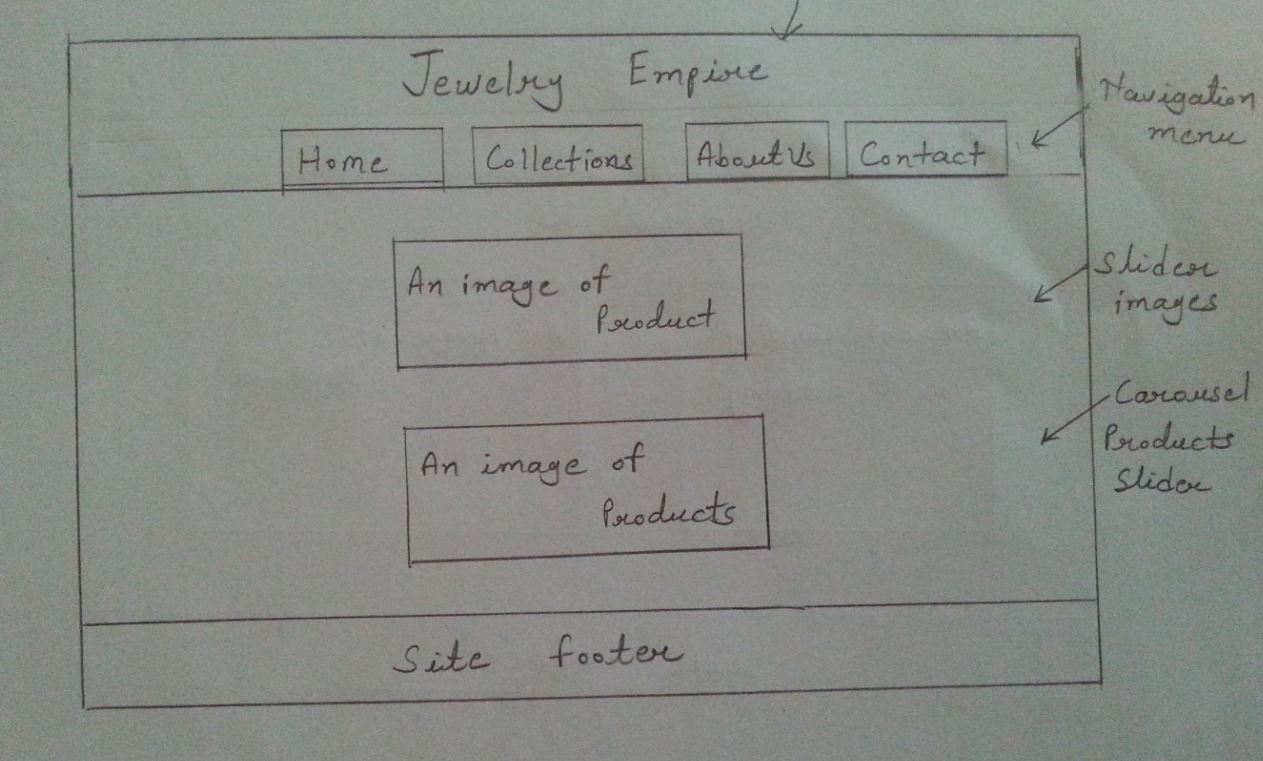 Jewelry Empire
Home Collections About Us Contact
Navigation
menu
An image of
Product
Slider
images
An image of
Products
Carousel
Products
Slider
Site footer